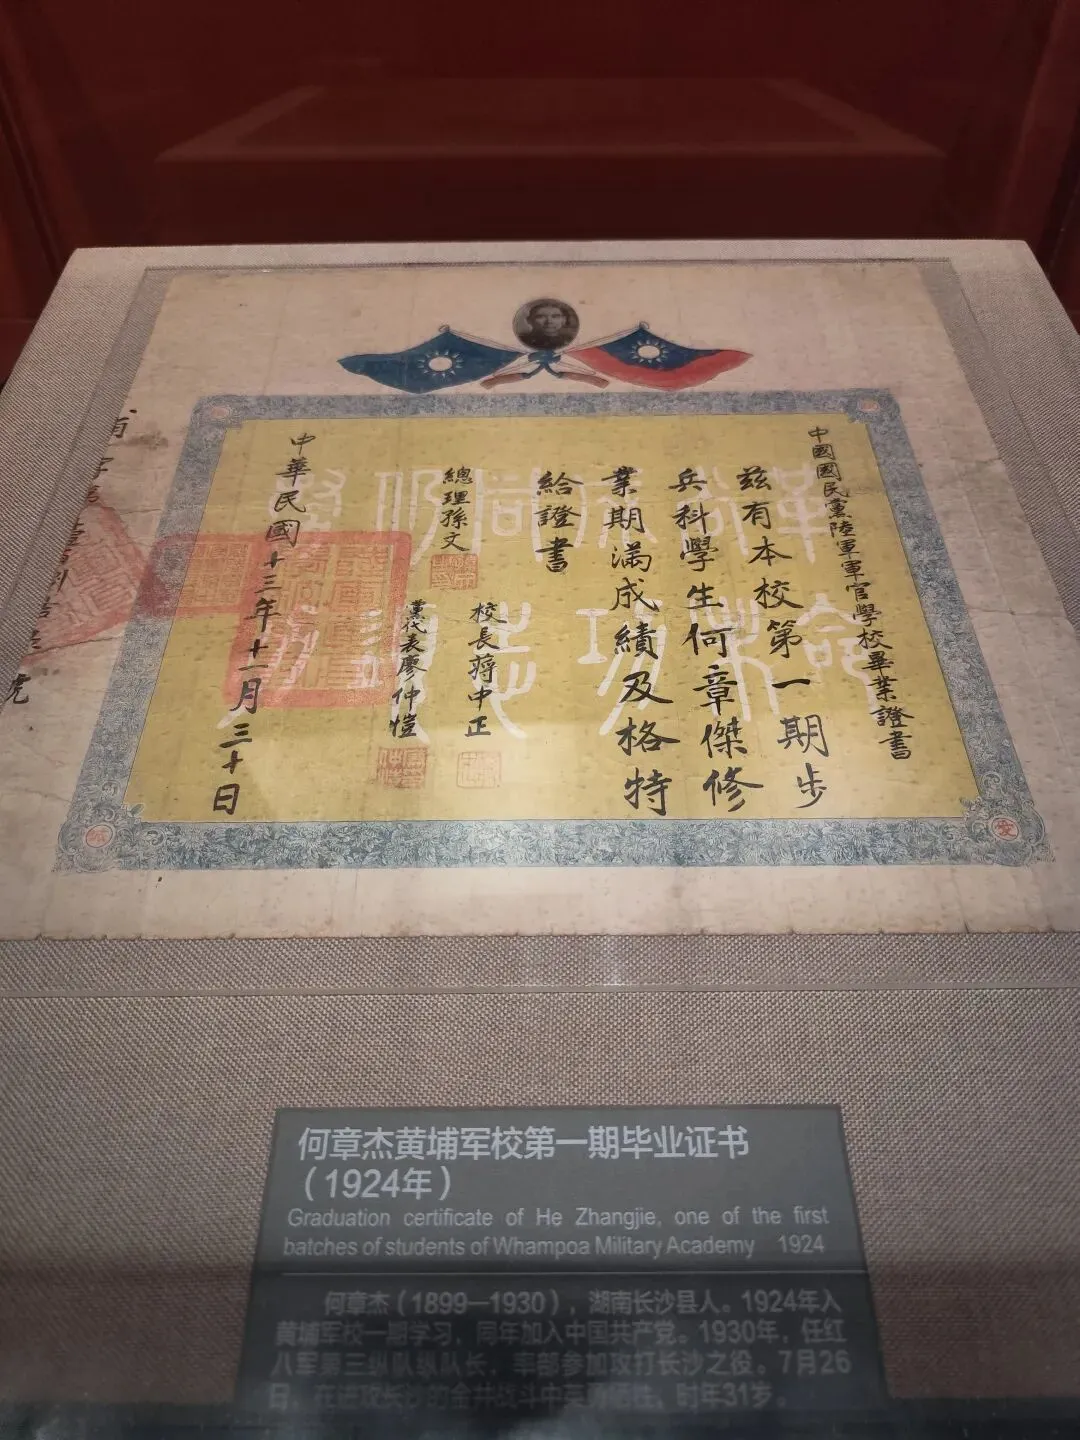 中國國民黨陸軍軍官學校畢業證書
茲有本校第一期步
兵科學生何章傑修
業期滿成績及格特
給證書
總理孫文
校長蔣中正
黨代表廖仲愷
中華民國十三年十一月三十日
革命尚未成功
同志仍須努力
何章杰黄埔军校第一期毕业证书
（1924年）
Graduation certificate of He Zhangjie, one of the first
batches of students of Whampoa Military Academy 1924
何章杰（1899—1930），湖南长沙县人。1924年入
黄埔军校一期学习，同年加入中国共产党。1930年，任红
八军第三纵队纵队长，率部参加攻打长沙之役。7月26
日，在进攻长沙的金井战斗中英勇牺牲，时年31岁。